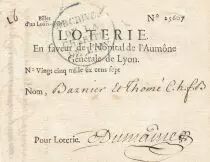 Billet d'un Louis
N° 25607
LOTERIE
En faveur de l'Hôpital de l'Aumône
Générale de Lyon.
N° Vingt cinq mille six cens sept
Nom, Barnier et Thomé
Pour Loterie. Dumaine